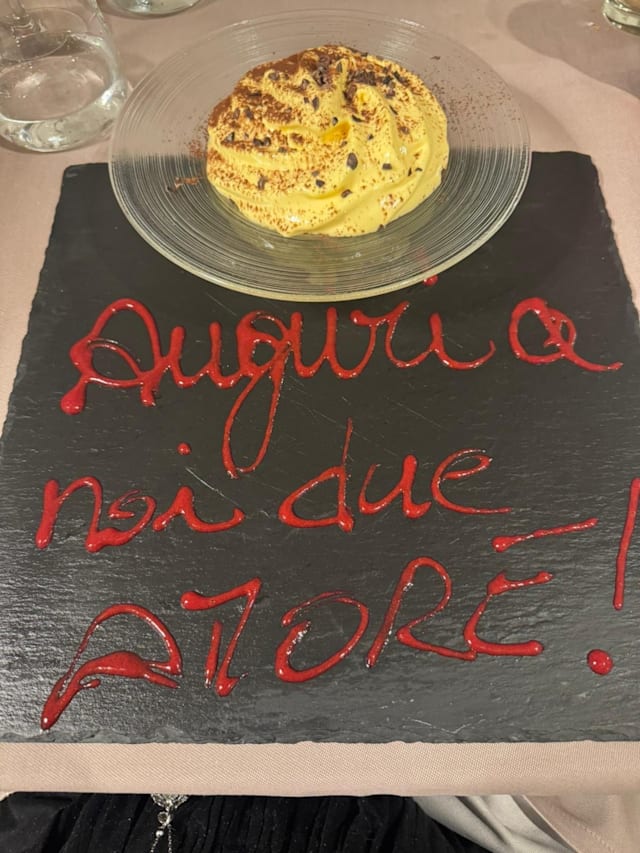 Auguri a
noi due
AMORE!